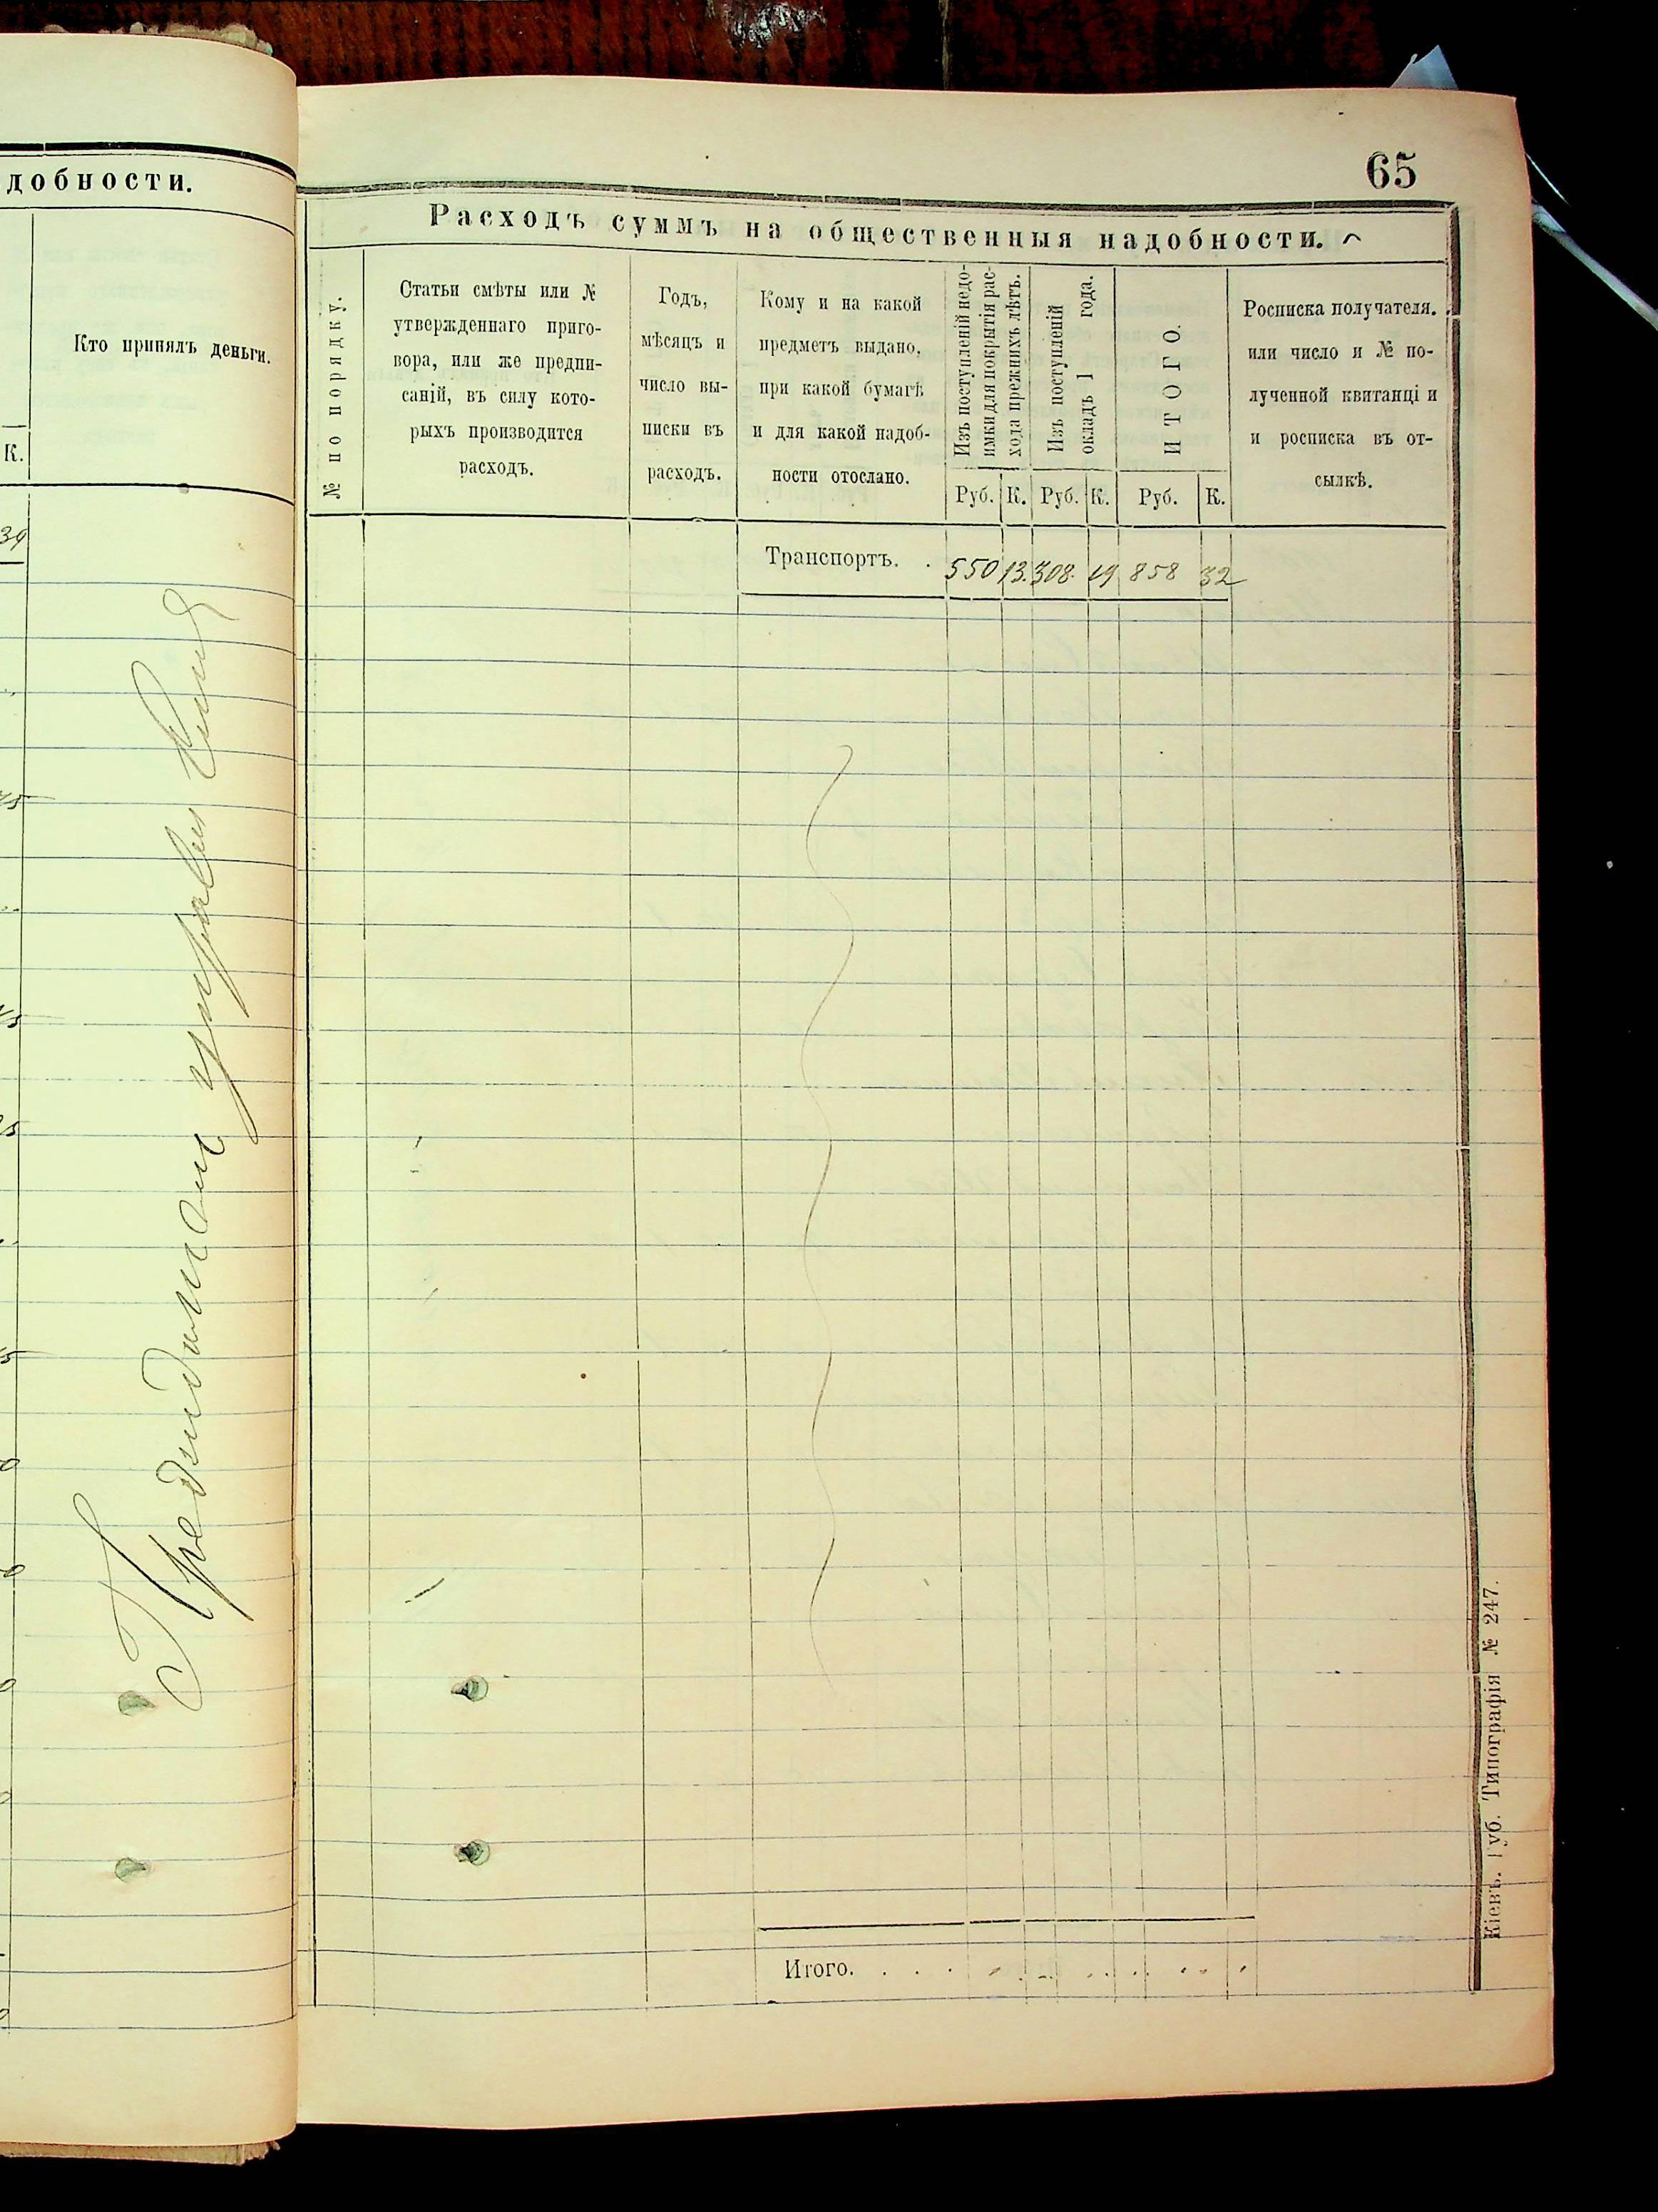 добности.
Кто принялъ деньги.
К.
65
Расходъ суммъ на общественныя надобности.
№ по порядку.
Статьи смѣты или №
утвержденнаго приго-
вора, или же предпи-
саній, въ силу кото-
рыхъ производится
расходъ.
Годъ,
мѣсяцъ и
число вы-
писки въ
расходъ.
Кому и на какой
предметъ выдано,
при какой бумагѣ
и для какой надоб-
ности отослано.
Изъ поступленій недо-
имки для покрытія рас-
хода прежнихъ лѣтъ.
Изъ поступленій
окладъ 1 года.
ИТОГО.
Росписка получателя.
или число и № по-
лученной квитанці и
и росписка въ от-
сылкѣ.
Руб. К. Руб. К. Руб. К.
Транспортъ. . 550 13. 308. 19 858 32
Итого.
Кіевъ. Губ. Типографія № 247.